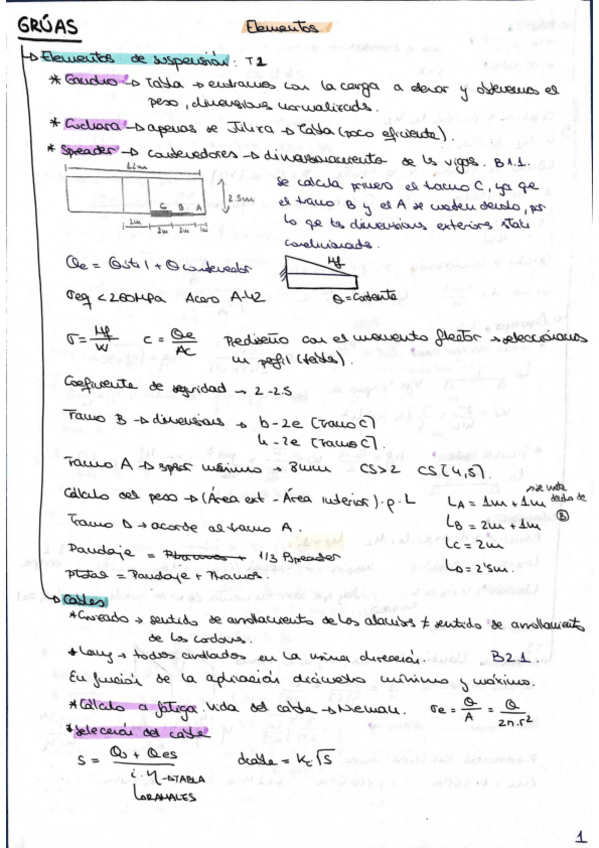 GRÚAS
Elementos
→ Elementos de suspensión: T1
* Gancho → Tabla → entramos con la carga a elevar y obtenemos el
peso, dimensiones normalizadas.
* Cuchara → apenas se utiliza → Tabla (poco eficiente).
* Spreader → contenedores → dimensionamiento de las vigas. B1.1.
se calcula primero el tramo C, ya que
el tramo B y el A se meten dentro, por
lo que las dimensiones exteriores están
condicionadas.
2.5m
C B A
1m 2m 2m 1m
Mf
Q = Cortante
Qe = Qútil + Q contenedor
σeq < 260MPa Acero A-42
σ = Mf/W C = Qe/Ac Rediseño con el momento flector → seleccionamos
un perfil (tabla).
Coeficiente de seguridad → 2-2.5
Tramo B → dimensiones → b-2e (Tramo C)
h-2e (Tramo C).
Tramo A → espesor mínimo → 8mm CS>2 CS(4,5).
Cálculo del peso → (Área ext - Área interior)·ρ·L
LA = 1m + 1m que entra dentro de B
LB = 2m + 1m
LC = 2m
LD = 2'5m.
Tramo D → acorde al tramo A.
Pandaje = 1/3 Pspreader
Ptotal = Pandaje + Ptramos.
→ Cables
* Cruzado → sentido de arrollamiento de los alambres ≠ sentido de arrollamiento
de los cordones.
* Lang → todos enrollados en la misma dirección. B2.1.
En función de la aplicación diámetro mínimo y máximo.
* Cálculo a fatiga. Vida del cable → Nieman. σe = Q/A = Q/2n·r²
* Selección del cable
S = Qu + Qes / i·η → TABLA
dcable = Kc √S
RAMALES
1